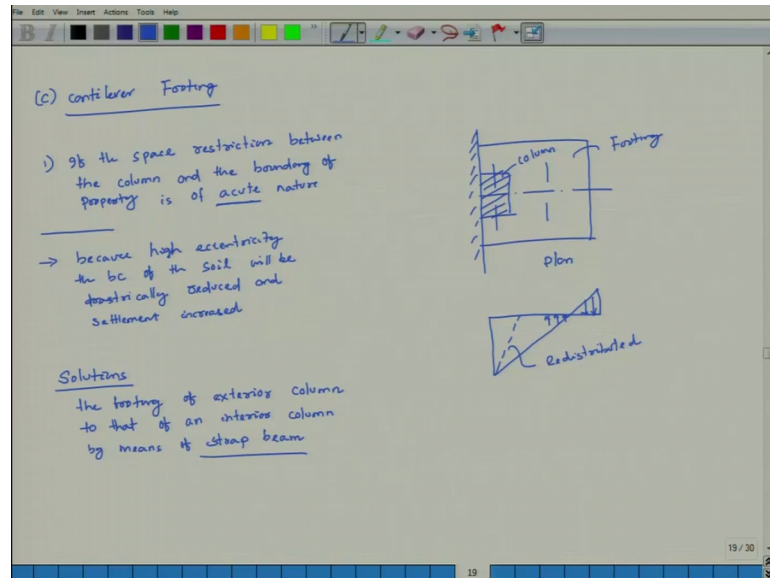 File Edit View Insert Actions Tools Help
B I
(c) cantilever Footing
1) If the space restriction between
the column and the boundary of
property is of acute nature
→ because high eccentricity
the bc of the soil will be
drastrically reduced and
settlement increased
Solutions
the footing of exterior column
to that of an interior column
by means of strap beam
column
Footing
plan
Redistributed
19 / 30
19